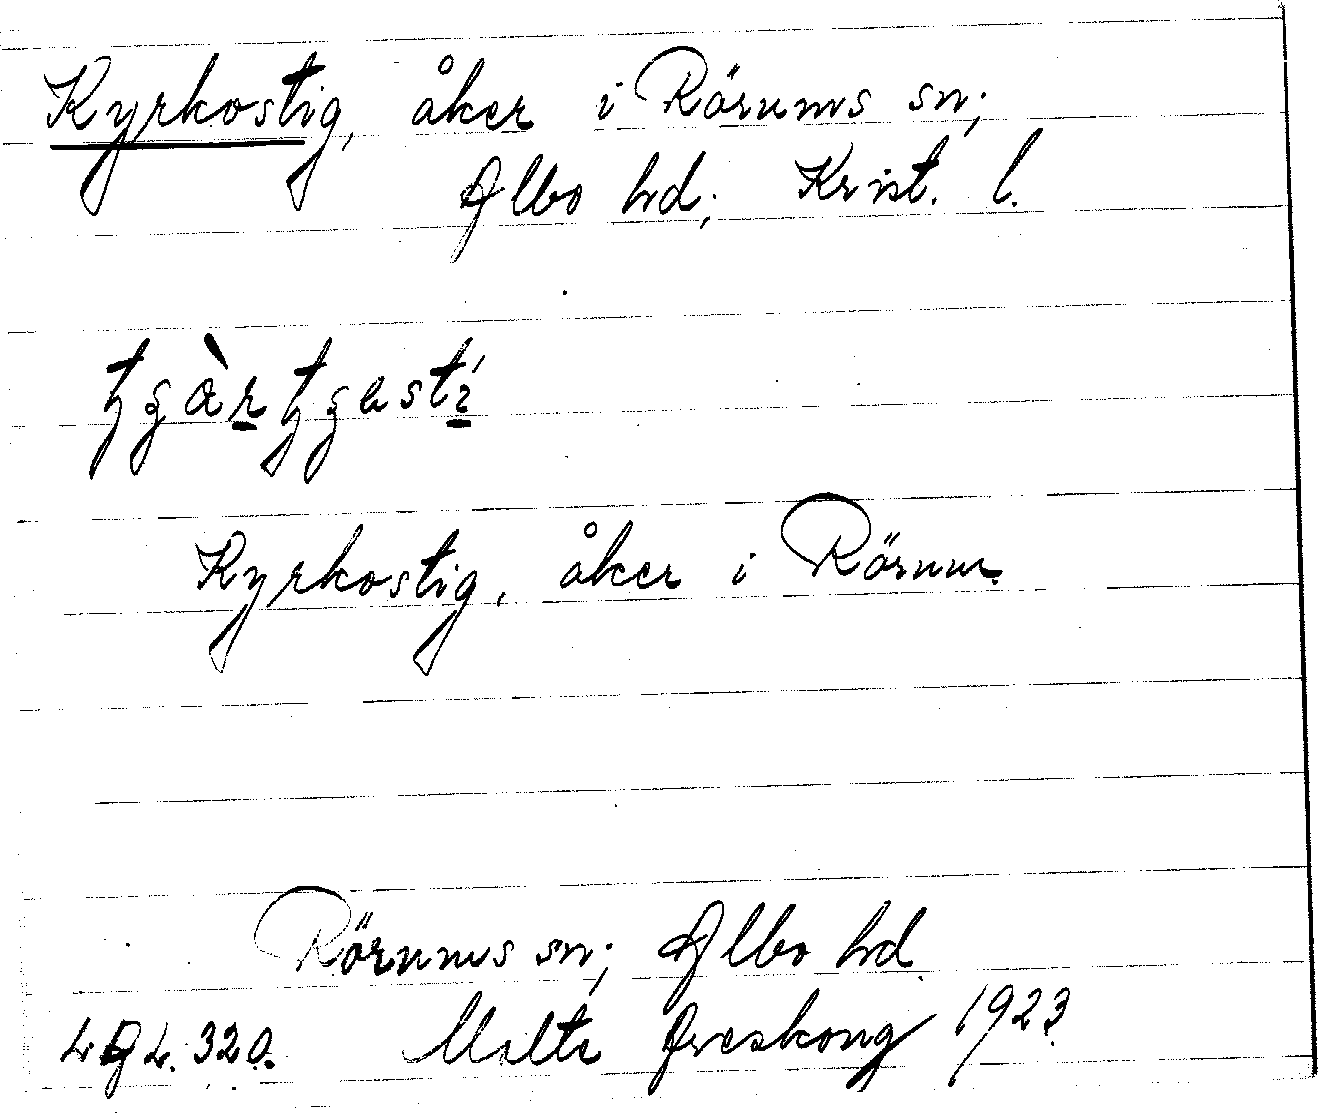 Kyrkostig, åker i Rörums sn;
Albo hd; Krist. l.
Kyrkostig, åker i Rörum.
Rörums sn; Albo hd.
Malte Areskong 1923.
LAL. 320.